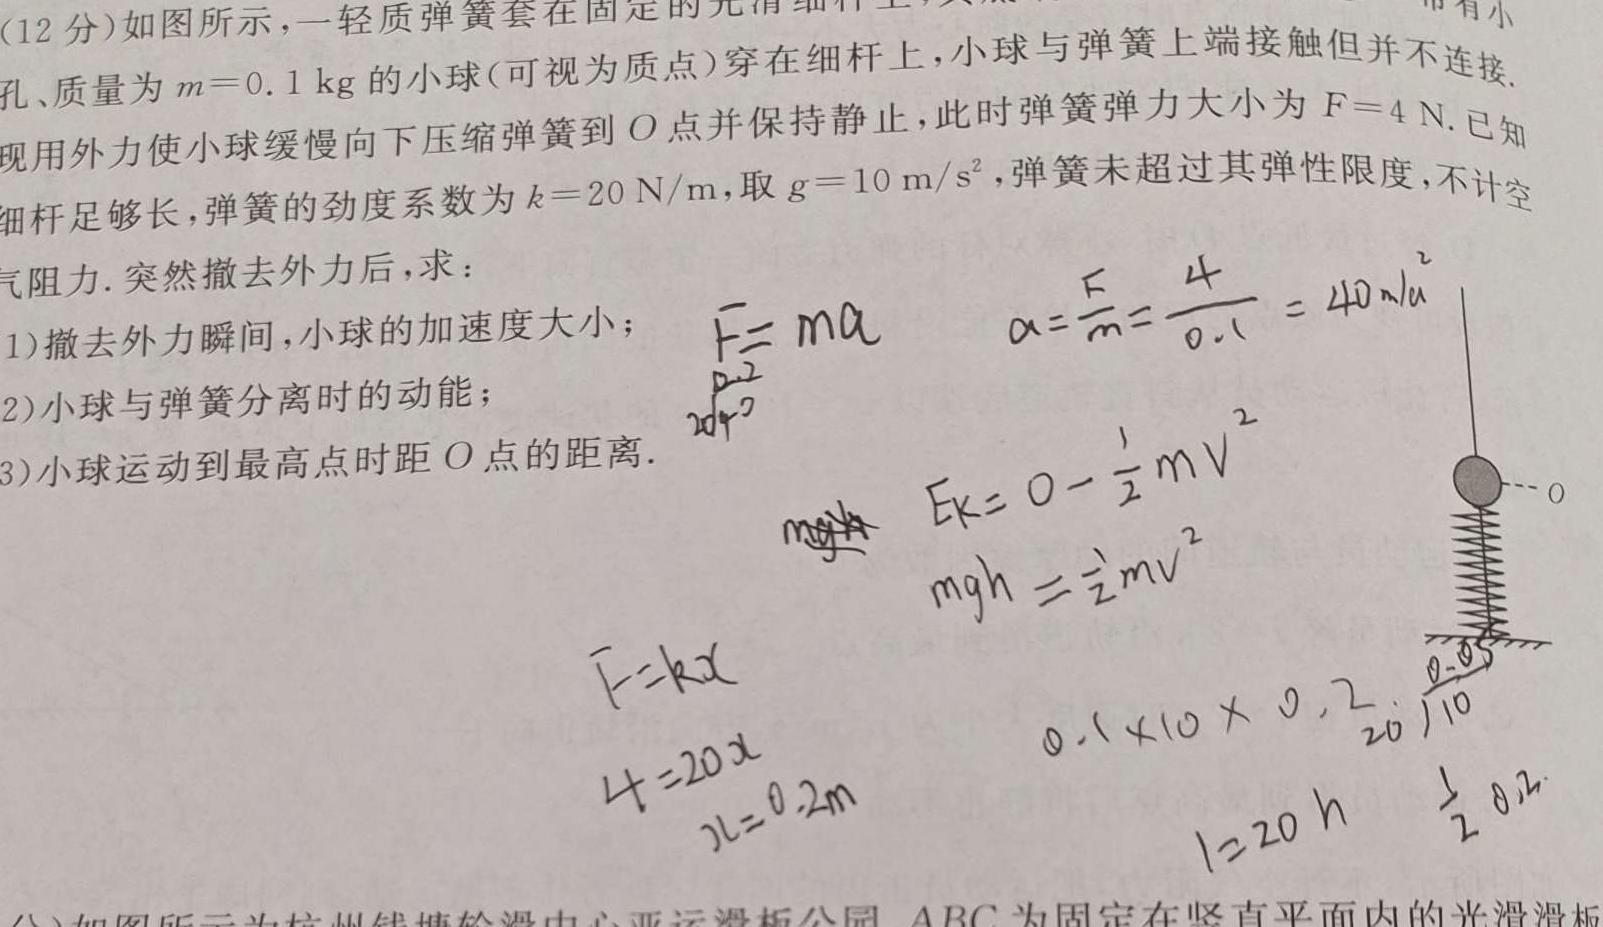 (12分)如图所示,一轻质弹簧套在固定的光滑细杆上,
带有小
孔、质量为m=0.1 kg的小球(可视为质点)穿在细杆上,小球与弹簧上端接触但并不连接.
现用外力使小球缓慢向下压缩弹簧到O点并保持静止,此时弹簧弹力大小为F=4 N.已知
细杆足够长,弹簧的劲度系数为k=20 N/m,取g=10 m/s²,弹簧未超过其弹性限度,不计空
气阻力.突然撤去外力后,求:
1)撤去外力瞬间,小球的加速度大小;
F=ma
a=F/m=4/0.1=40m/s²
2)小球与弹簧分离时的动能;
0.2
20 4 0
3)小球运动到最高点时距O点的距离.
O
Ek=0-1/2mv²
mgh=1/2mv²
F=kx
4=20x
x=0.2m
0.05
0.1×10×0.2
20 10
1=20h
1/2 0.2
如图所示为杭州钱塘轮滑中心亚运滑板公园,ABC为固定在竖直平面内的光滑滑板